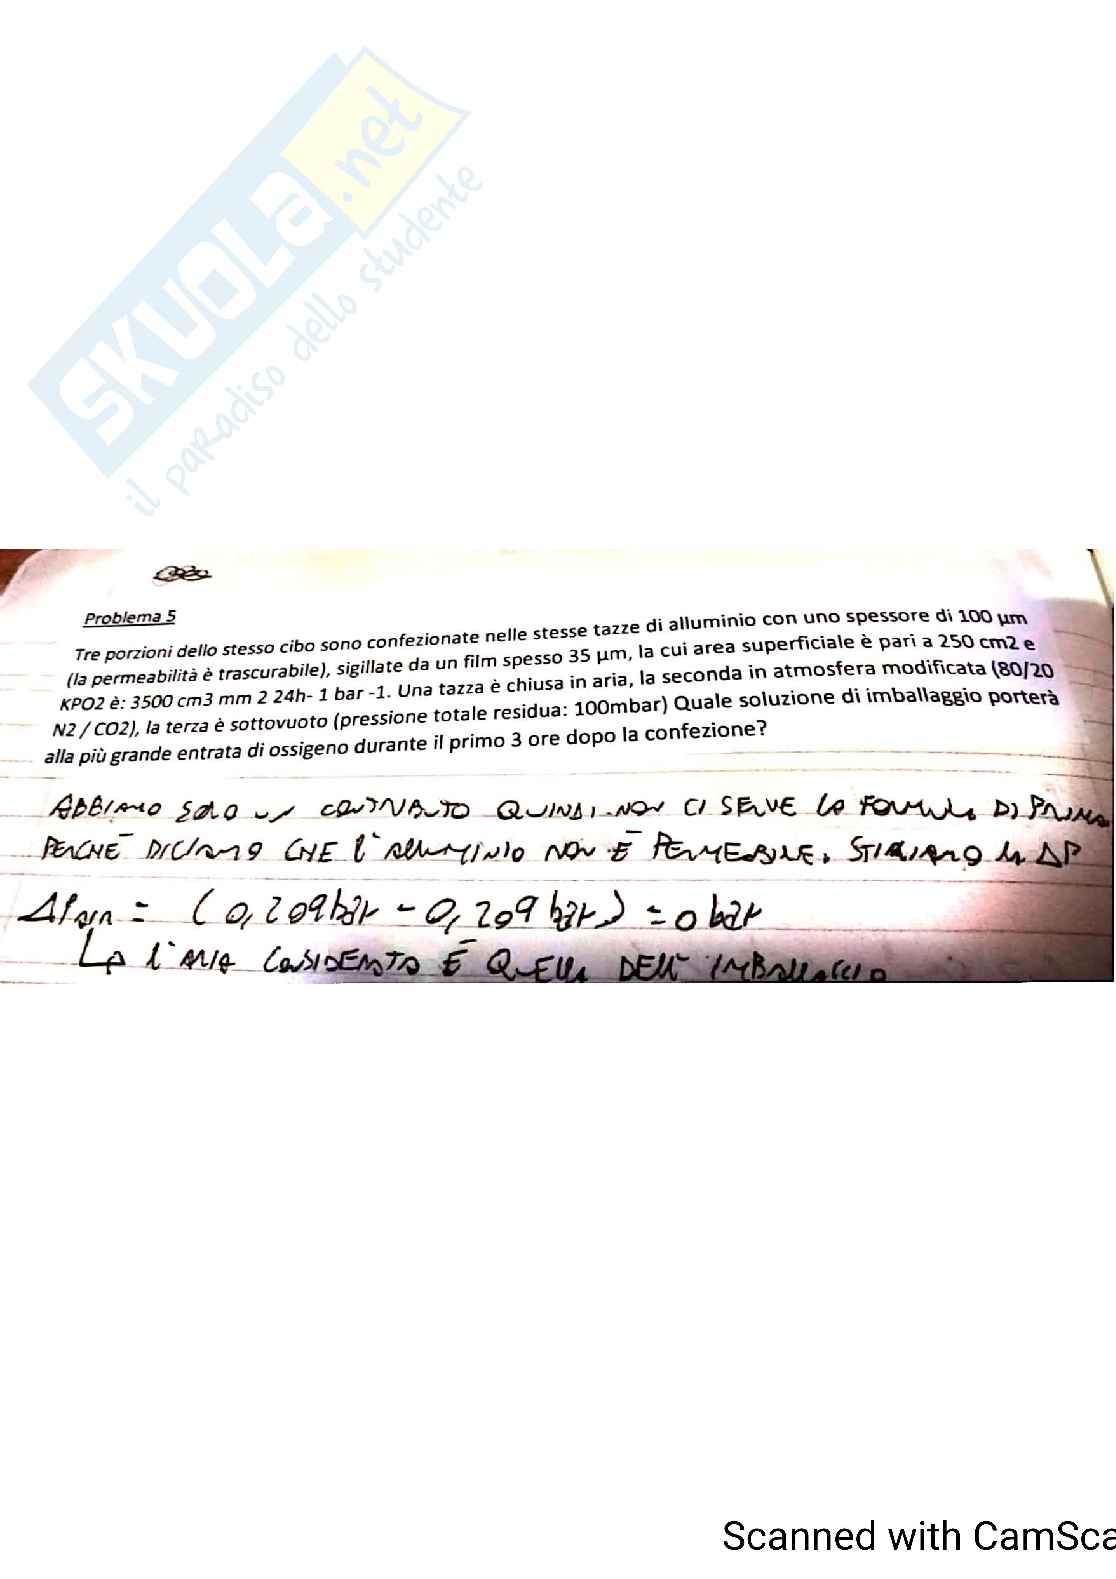 SKUOLA.net
il paradiso dello studente
Problema 5
Tre porzioni dello stesso cibo sono confezionate nelle stesse tazze di alluminio con uno spessore di 100 µm
(la permeabilità è trascurabile), sigillate da un film spesso 35 µm, la cui area superficiale è pari a 250 cm2 e
KPO2 è: 3500 cm3 mm 2 24h- 1 bar -1. Una tazza è chiusa in aria, la seconda in atmosfera modificata (80/20
N2 / CO2), la terza è sottovuoto (pressione totale residua: 100mbar) Quale soluzione di imballaggio porterà
alla più grande entrata di ossigeno durante il primo 3 ore dopo la confezione?
ABBIAMO SOLO UN CONTRIBUTO QUINDI NON CI SERVE LA FORMULA DI PRIMA
PERCHÉ DICIAMO CHE L'ALLUMINIO NON È PERMEABILE. STIMIAMO LA ΔP
ΔParia = (0,209 bar - 0,209 bar) = 0 bar
L'ARIA CONSIDERATA È QUELLA DELL'IMBALLAGGIO
Scanned with CamSca